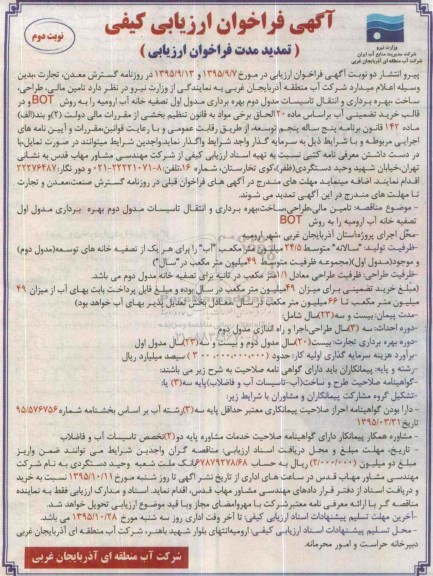 وزارت نیرو
شرکت مدیریت منابع آب ایران
شرکت سهامی آب منطقه ای آذربایجان غربی
آگهی فراخوان ارزیابی کیفی
نوبت دوم
( تمدید مدت فراخوان ارزیابی )
پیرو انتشار دو نوبت آگهی فراخوان ارزیابی در مورخ ۱۳۹۵/۹/۷ و ۱۳۹۵/۹/۱۳ در روزنامه گسترش معدن، تجارت ،بدین
وسیله اعلام میدارد شرکت آب منطقه آذربایجان غربی به نمایندگی از وزارت نیرو در نظر دارد تامین مالی، طراحی،
ساخت ،بهره برداری و انتقال تاسیسات مدول دوم بهره برداری مدول اول تصفیه خانه آب ارومیه را به روش BOT و در
قالب خرید تضمینی آب براساس ماده ۲۰ الحاق برخی مواد به قانون تنظیم بخشی از مقررات مالی دولت (۲)و بند(الف)
ماده ۱۴۲ قانون برنامه پنج ساله پنجم توسعه، از طریق رقابت عمومی و با رعایت قوانین،مقررات و آیین نامه های
اجرایی مربوطه و با شرایط ذیل به سرمایه گذار واجد شرایط واگذار نماید.واجدین شرایط میتوانند در صورت تمایل،با
در دست داشتن معرفی نامه کتبی نسبت به تهیه اسناد ارزیابی کیفی از شرکت مهندسی مشاور مهاب قدس به نشانی
تهران،خیابان شهید وحید دستگردی(ظفر)،کوی تخارستان، شماره ۱۶،تلفن:۸-۲۲۲۲۱۰۷۱-۰۲۱ و دور نگار: ۲۲۲۷۶۴۸۷
اقدام نمایند. اضافه مینماید مهلت های مندرج در آگهی های فراخوان قبلی در روزنامه گسترش صنعت،معدن و تجارت
تا مهلت های مندرج در این آگهی تمدید می شوند.
- موضوع مناقصه: تامین مالی،طراحی،ساخت،بهره برداری و انتقال تاسیسات مدول دوم بهره برداری مدول اول
تصفیه خانه آب ارومیه را به روش BOT
-محل اجرای پروژه:استان آذربایجان غربی شهر ارومیه
-ظرفیت تولید: "سالانه" متوسط ۲۴/۵ میلیون متر مکعب "آب" را برای هر یک از تصفیه خانه های توسعه(مدول دوم)
و موجود(مدول اول)(مجموعه ظرفیت متوسط ۴۹ میلیون متر مکعب در"سال")
-ظرفیت طراحی: ظرفیت طراحی معادل ۱/۱ متر مکعب در ثانیه برای تصفیه خانه مدول دوم می باشد.
(مبلغ خرید تضمینی برای میزان ۴۹ میلیون متر مکعب در سال بوده و مبلغ قابل پرداخت بابت بهای آب از میزان ۴۹
میلیون متر مکعب تا ۶۶ میلیون متر مکعب در سال معادل بخش تعدیل پذیر بهای آب خواهد بود)
-مدت پیمان: بیست و سه(۲۳)سال شامل:
-دوره احداث: سه (۳)سال طراحی،اجرا و راه اندازی مدول دوم
-دوره بهره برداری تجارت: بیست(۲۰)سال مدول دوم و بیست و سه(۲۳)سال مدول اول
-برآورد هزینه سرمایه گذاری اولیه کار: حدود (۳۰۰۰،۰۰۰،۰۰۰،۰۰۰ ) سیصد میلیارد ریال
-رشته و پایه: پیمانکاران باید دارای گواهی نامه صلاحیت به شرح زیر می باشند:
-گواهینامه صلاحیت طرح و ساخت(آب-تاسیسات آب و فاضلاب)پایه سه(۳) یا:
-تشکیل گروه مشارکت پیمانکاران و مشاوران با شرایط زیر:
- دارا بودن گواهینامه احراز صلاحیت پیمانکاری معتبر حداقل پایه سه(۳)رشته آب بر اساس بخشنامه شماره ۹۵/۵۷۶۷۵۶
تاریخ ۱۳۹۵/۰۳/۳۱
- مشاوره همکار پیمانکار دارای گواهینامه صلاحیت خدمات مشاوره پایه دو(۲)تخصص تاسیسات آب و فاضلاب
- تاریخ، مهلت مبلغ و محل دریافت اسناد ارزیابی: مناقصه گران واجدین شرایط می توانند ضمن واریز
مبلغ دو میلیون (۲/۰۰۰/۰۰۰) ریال به حساب ۶۷۸۷۹۲۷۸/۶۸بانک ملت شعبه وحید دستگردی به نام شرکت
مهندسی مشاور مهاب قدس در ساعت های اداری از تاریخ نشر آگهی تا روز شنبه مورخ ۱۳۹۵/۱۰/۱۱ نسبت به خرید
و دریافت اسناد از دفتر قرار دادهای مهندسی مشاور مهاب قدس، اقدام نماید. اسناد و مدارک ارزیابی فقط به نماینده
مناقصه گر با ارائه معرفی نامه معتبرشرکت با مهروامضای مجاز وبا قید موضوع ارزیابی تحویل خواهد شد.
-آخرین مهلت تسلیم پیشنهادات اسناد ارزیابی کیفی: تا آخر وقت اداری روز سه شنبه مورخ ۱۳۹۵/۱۰/۲۸ می باشد.
- محل تسلیم پیشنهادات اسناد ارزیابی کیفی: ارومیه،انتهای بلوار شهید باهنر، شرکت آب منطقه ای آذربایجان غربی
دبیرخانه حراست و امور محرمانه.
شرکت آب منطقه ای آذربایجان غربی